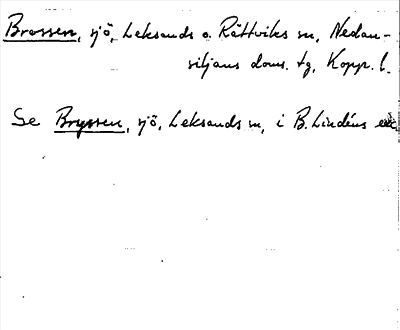 Brossen, sjö, Leksands o. Rättviks sn, Nedan-
siljans doms. tg, Kopp. l.
Se Bryssen, sjö, Leksands sn, i B. Lindéns